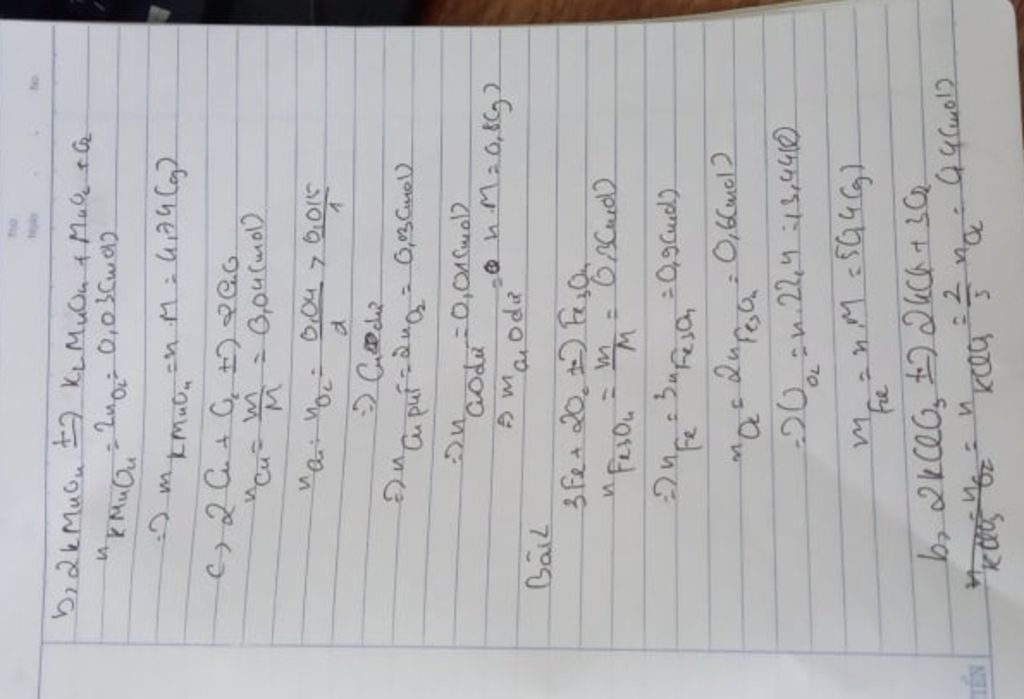 Thứ
Ngày
No.
b, 2KMnO4 t°→ K2MnO4 + MnO2 + O2
n KMnO4 = 2nO2 = 0,03 (mol)
=> m KMnO4 = n.M = 4,74 (g)
c, 2Cu + O2 t°→ 2CuO
nCu = m/M = 0,04 (mol)
nCu : nO2 = 0,04/2 > 0,015/1
=> Cu dư
=> n Cu pứ = 2nO2 = 0,03 (mol)
=> n Cu dư = 0,01 (mol)
=> m Cu dư = n.M = 0,8 (g)
Bài
3Fe + 2O2 t°→ Fe3O4
n Fe3O4 = m/M = 0,3 (mol)
=> n Fe = 3n Fe3O4 = 0,9 (mol)
nO2 = 2n Fe3O4 = 0,6 (mol)
=> V O2 = n.22,4 = 13,44 (l)
m Fe = n.M = 50,4 (g)
b, 2KClO3 t°→ 2KCl + 3O2
n KClO3 = 2/3 nO2 = 0,4 (mol)